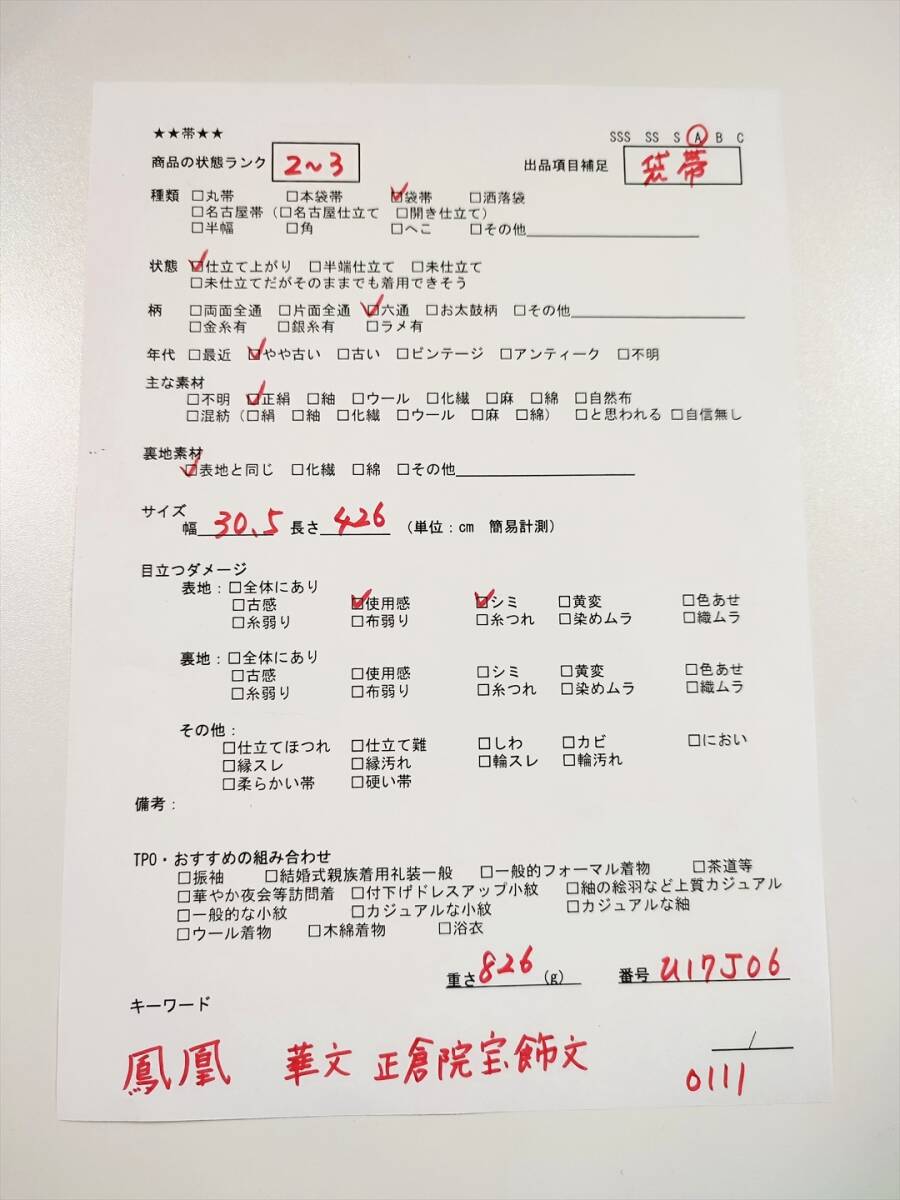 ★★帯★★
SSS SS S A B C
商品の状態ランク 2~3 出品項目補足 袋帯
種類 □丸帯 □本袋帯 ☑袋帯 □洒落袋
□名古屋帯(□名古屋仕立て □開き仕立て)
□半幅 □角 □へこ □その他
状態 ☑仕立て上がり □半端仕立て □未仕立て
□未仕立てだがそのままでも着用できそう
柄 □両面全通 □片面全通 ☑六通 □お太鼓柄 □その他
□金糸有 □銀糸有 □ラメ有
年代 □最近 ☑やや古い □古い □ビンテージ □アンティーク □不明
主な素材
□不明 ☑正絹 □紬 □ウール □化繊 □麻 □綿 □自然布
□混紡(□絹 □紬 □化繊 □ウール □麻 □綿) □と思われる □自信無し
裏地素材
☑表地と同じ □化繊 □綿 □その他
サイズ
幅 30.5 長さ 426 (単位:cm 簡易計測)
目立つダメージ
表地:□全体にあり
□古感 ☑使用感 ☑シミ □黄変 □色あせ
□糸弱り □布弱り □糸つれ □染めムラ □織ムラ
裏地:□全体にあり
□古感 □使用感 □シミ □黄変 □色あせ
□糸弱り □布弱り □糸つれ □染めムラ □織ムラ
その他:
□仕立てほつれ □仕立て難 □しわ □カビ □におい
□縁スレ □縁汚れ □輪スレ □輪汚れ
□柔らかい帯 □硬い帯
備考:
TPO・おすすめの組み合わせ
□振袖 □結婚式親族着用礼装一般 □一般的フォーマル着物 □茶道等
□華やか夜会等訪問着 □付下げドレスアップ小紋 □紬の絵羽など上質カジュアル
□一般的な小紋 □カジュアルな小紋 □カジュアルな紬
□ウール着物 □木綿着物 □浴衣
重さ 826 (g) 番号 U17J06
キーワード
鳳凰 華文 正倉院宝飾文
/
0111